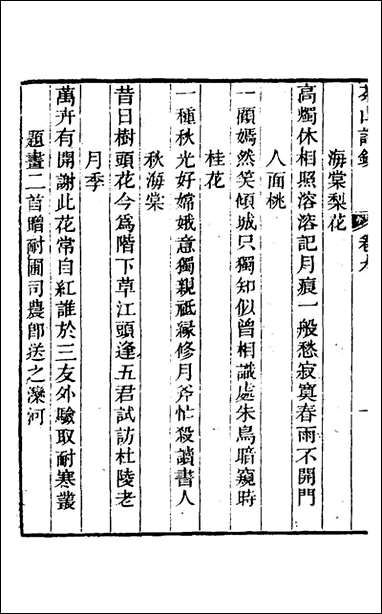 茶山詩鈔 卷九
海棠梨花
高燭休相照溶溶記月痕一般愁寂寞春雨不開門
人面桃
一顧嫣然笑傾城只獨知似曾相識處朱鳥暗窺時
桂花
一種秋光好嫦娥意獨親祗緣修月斧忙殺讀書人
秋海棠
昔日樹頭花今爲階下草江頭逢五君試訪杜陵老
月季
萬卉有開謝此花常自紅誰於三友外驗取耐寒叢
題畫二首贈耐圃司農卽送之灤河